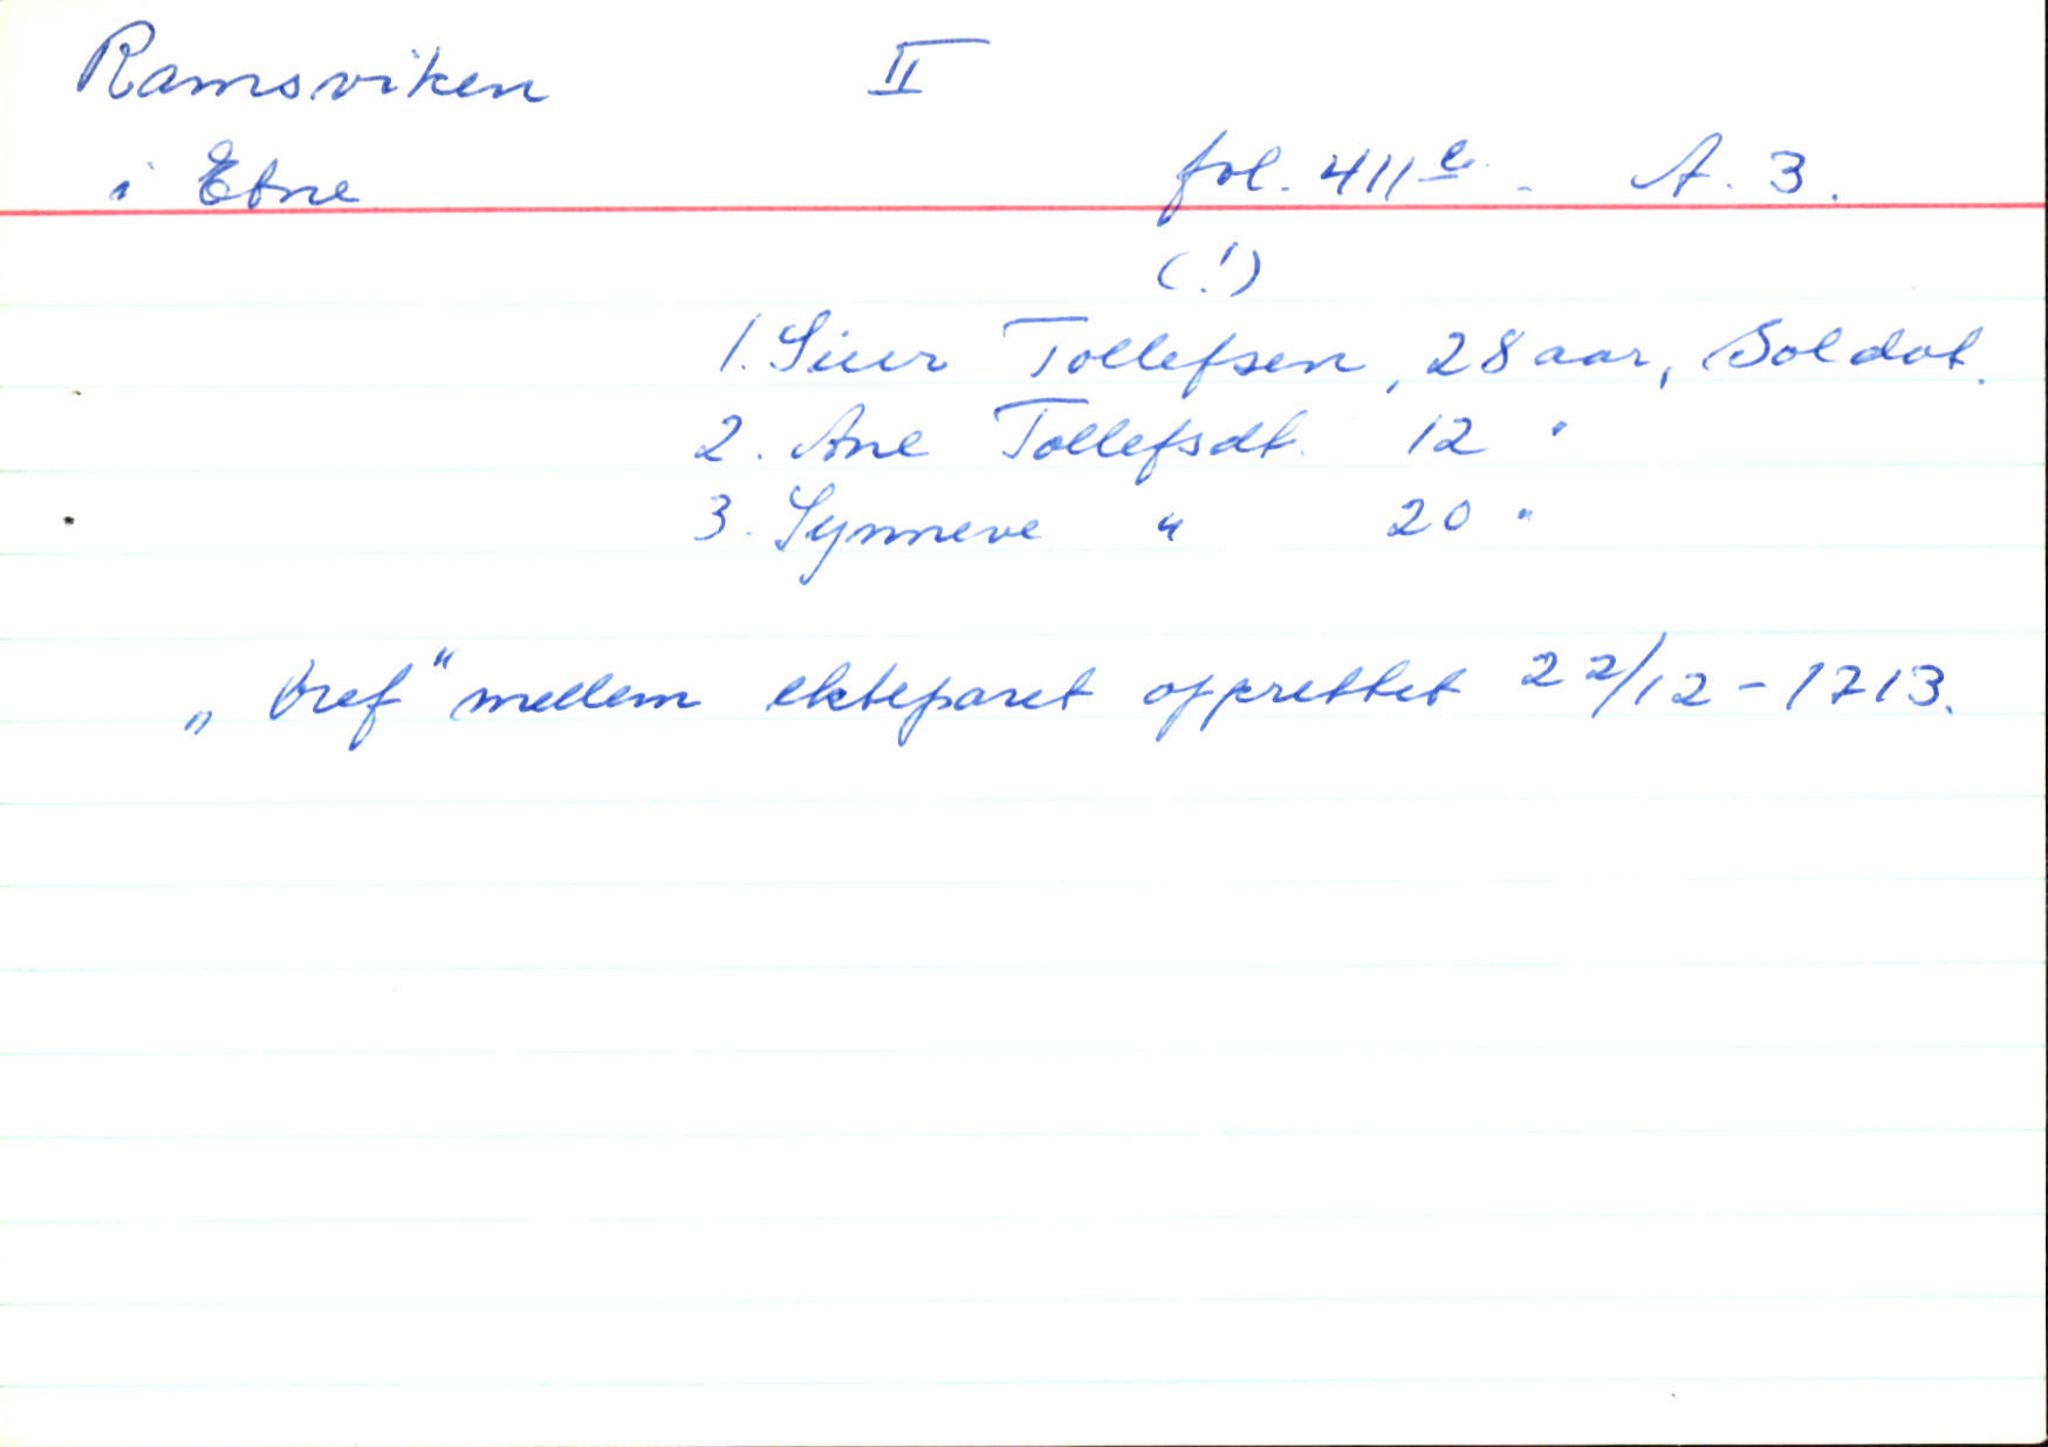 Ramsviken II
i Etne fol. 411 e. - A. 3.
(!)
1. Siur Tollefsen, 28 aar, Soldat.
2. Ane Tollefsdt. 12 "
3. Synneve " 20 "
„bref" mellem ekteparet opprettet 22/12-1713.